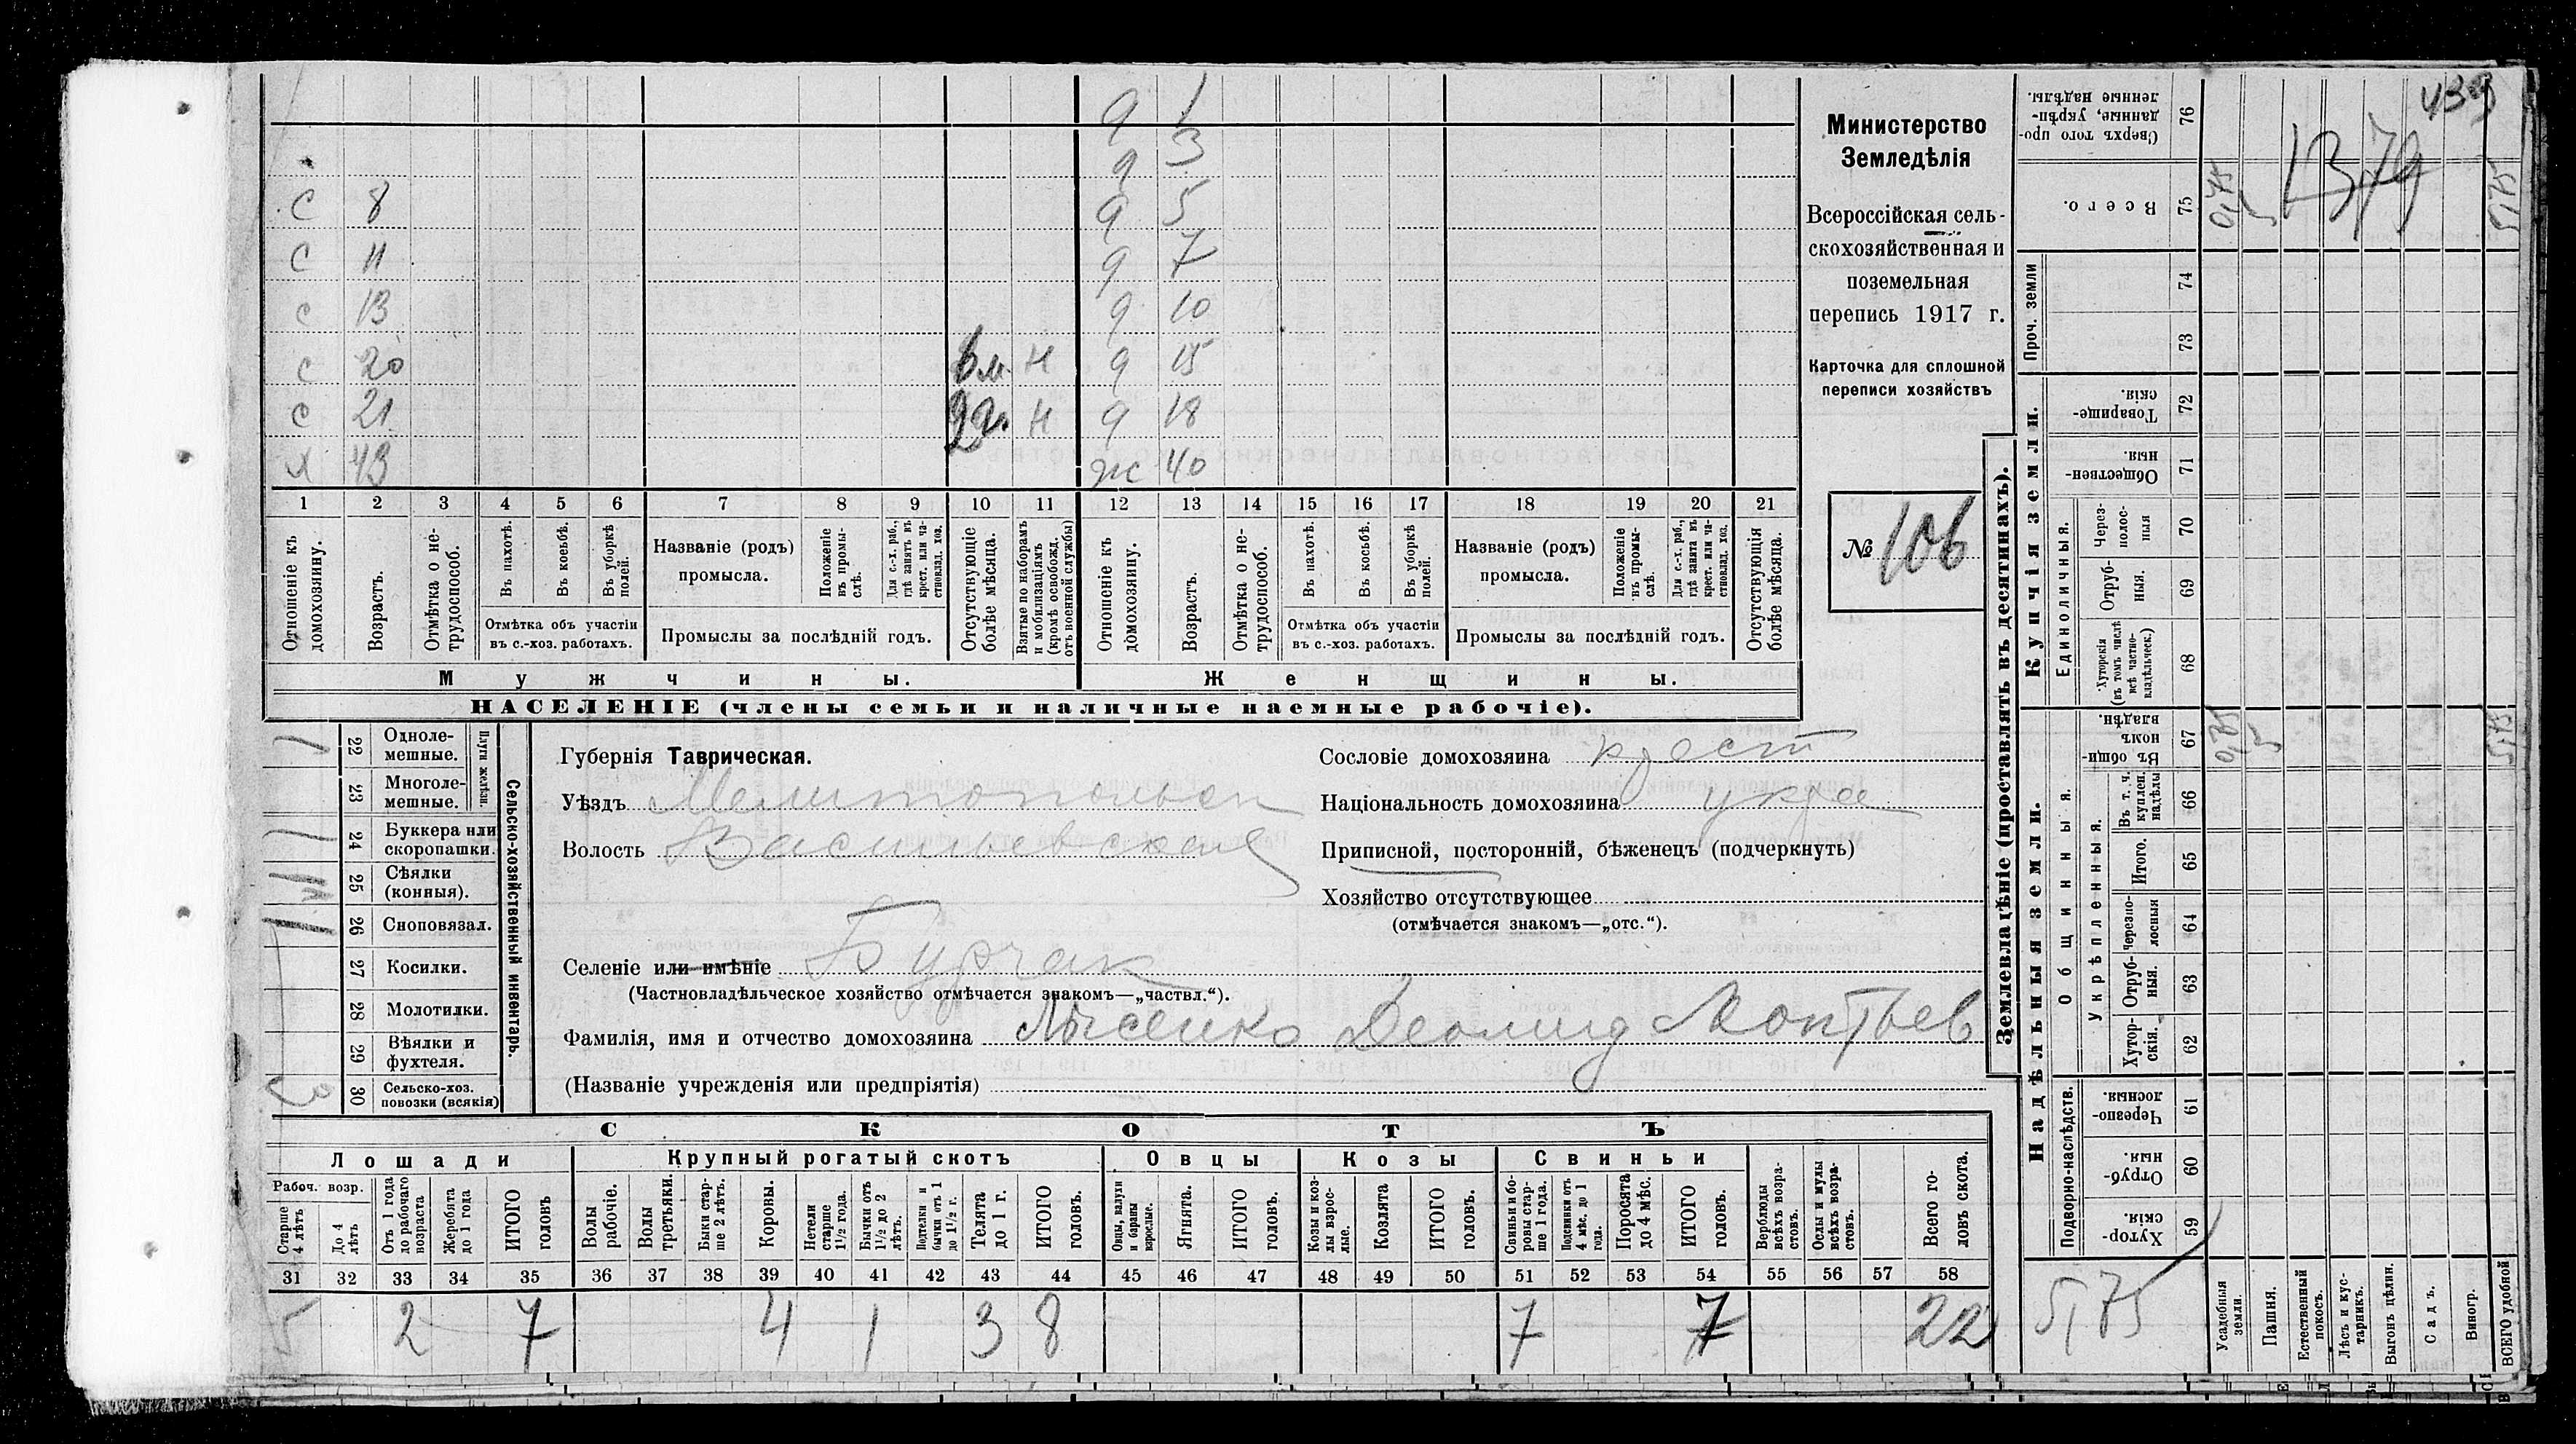 9 1
9 3
С 8 9 5
С 11 9 7
С 13 9 10
С 20 н 9 15
С 21 2 г. н 9 18
Х 43 Ж 40
1 2 3 4 5 6 7 8 9 10 11 12 13 14 15 16 17 18 19 20 21
Отношеніе къ домохозяину.
Возрастъ.
Отмѣтка о нетрудоспособ.
Въ пахотѣ.
Въ косьбѣ.
Въ уборкѣ полей.
Отмѣтка объ участіи
въ с.-хоз. работахъ.
Названіе (родъ)
промысла.
Положеніе въ промыслѣ.
Для с.-х. раб., гдѣ занятъ въ крест. или частновлад. хоз.
Промыслы за послѣдній годъ.
Отсутствующіе болѣе мѣсяца.
Взятые по наборамъ и мобилизаціямъ (кромѣ освобожд. отъ военной службы)
Отношеніе къ домохозяину.
Возрастъ.
Отмѣтка о нетрудоспособ.
Въ пахотѣ.
Въ косьбѣ.
Въ уборкѣ полей.
Отмѣтка объ участіи
въ с.-хоз. работахъ.
Названіе (родъ)
промысла.
Положеніе въ промыслѣ.
Для с.-х. раб., гдѣ занята въ крест. или частновлад. хоз.
Промыслы за послѣдній годъ.
Отсутствующія болѣе мѣсяца.
Мужчины.
Женщины.
НАСЕЛЕНІЕ (члены семьи и наличные наемные рабочіе).
Министерство
Земледѣлія
Всероссійская сель-
скохозяйственная и
поземельная
перепись 1917 г.
Карточка для сплошной
переписи хозяйствъ
№ 106
22 Одноле-
мешные.
23 Многоле-
мешные.
Плуги желѣзн.
24 Буккера или
скоропашки.
25 Сѣялки
(конныя).
26 Сноповязал.
27 Косилки.
28 Молотилки.
29 Вѣялки и
фухтеля.
30 Сельско-хоз.
повозки (всякія)
Сельско-хозяйственный инвентарь.
Губернія Таврическая.
Уѣздъ Мелитопольск
Волость Васильевская
Селеніе или имѣніе Бурчак
(Частновладѣльческое хозяйство отмѣчается знакомъ—„частвл.“).
Фамилія, имя и отчество домохозяина Лысенко Леонид Леонтьев
(Названіе учрежденія или предпріятія)
Сословіе домохозяина крест
Національность домохозяина укра
Приписной, посторонній, бѣженецъ (подчеркнуть)
Хозяйство отсутствующее
(отмѣчается знакомъ—„отс.“).
СКОТЪ
Лошади Крупный рогатый скотъ Овцы Козы Свиньи
Рабоч. возр.
Старше 4 лѣтъ
До 4 лѣтъ
Отъ 1 года до рабочаго возраста
Жеребята до 1 года
ИТОГО головъ
Волы рабочіе.
Волы третьяки.
Быки старше 2 лѣтъ.
Коровы.
Нетели старше 1½ года.
Бычки отъ 1½ до 2 лѣтъ.
Подтелки и бычки отъ 1 до 1½ г.
Телята до 1 г.
ИТОГО головъ.
Овцы, валухи и бараны взрослые.
Ягнята.
ИТОГО головъ.
Козы и козлы взрослые.
Козлята
ИТОГО головъ.
Свиньи и боровы старше 1 года.
Подсвинки отъ 4 мѣс. до 1 года.
Поросята до 4 мѣс.
ИТОГО головъ.
Верблюды всѣхъ возрастовъ.
Ослы и мулы всѣхъ возрастовъ.
Всего головъ скота.
31 32 33 34 35 36 37 38 39 40 41 42 43 44 45 46 47 48 49 50 51 52 53 54 55 56 57 58
5 2 7 4 1 3 8 7 7 22
Землевладѣніе (проставлять въ десятинахъ).
Надѣльныя земли.
Купчія земли.
Проч. земли
Подворно-наслѣдств.
Общинныя.
Укрѣпленныя.
Единоличныя.
Хуторскія 59
Отрубныя 60
Черезполосныя. 61
Хуторскія. 62
Отрубныя. 63
Черезполосныя 64
Итого. 65
Въ т. ч. куплен. надѣлы 66
Въ общиномъ владѣн. 67
Хуторскія (въ томъ числѣ всѣ частновладѣльческ.) 68
Отрубныя. 69
Черезполосныя 70
Общественныя. 71
Товарищескія. 72
73
74
Всего. 75
Сверхъ того проданные, укрѣпленные надѣлы. 76
Усадебныя земли.
Пашня.
Естественный покосъ.
Лѣсъ и кустарникъ.
Выгонъ цѣлин.
Садъ.
Виногр.
ВСЕГО удобной
0,75
5
5,75
0,75
5
5,75
5,75
1379